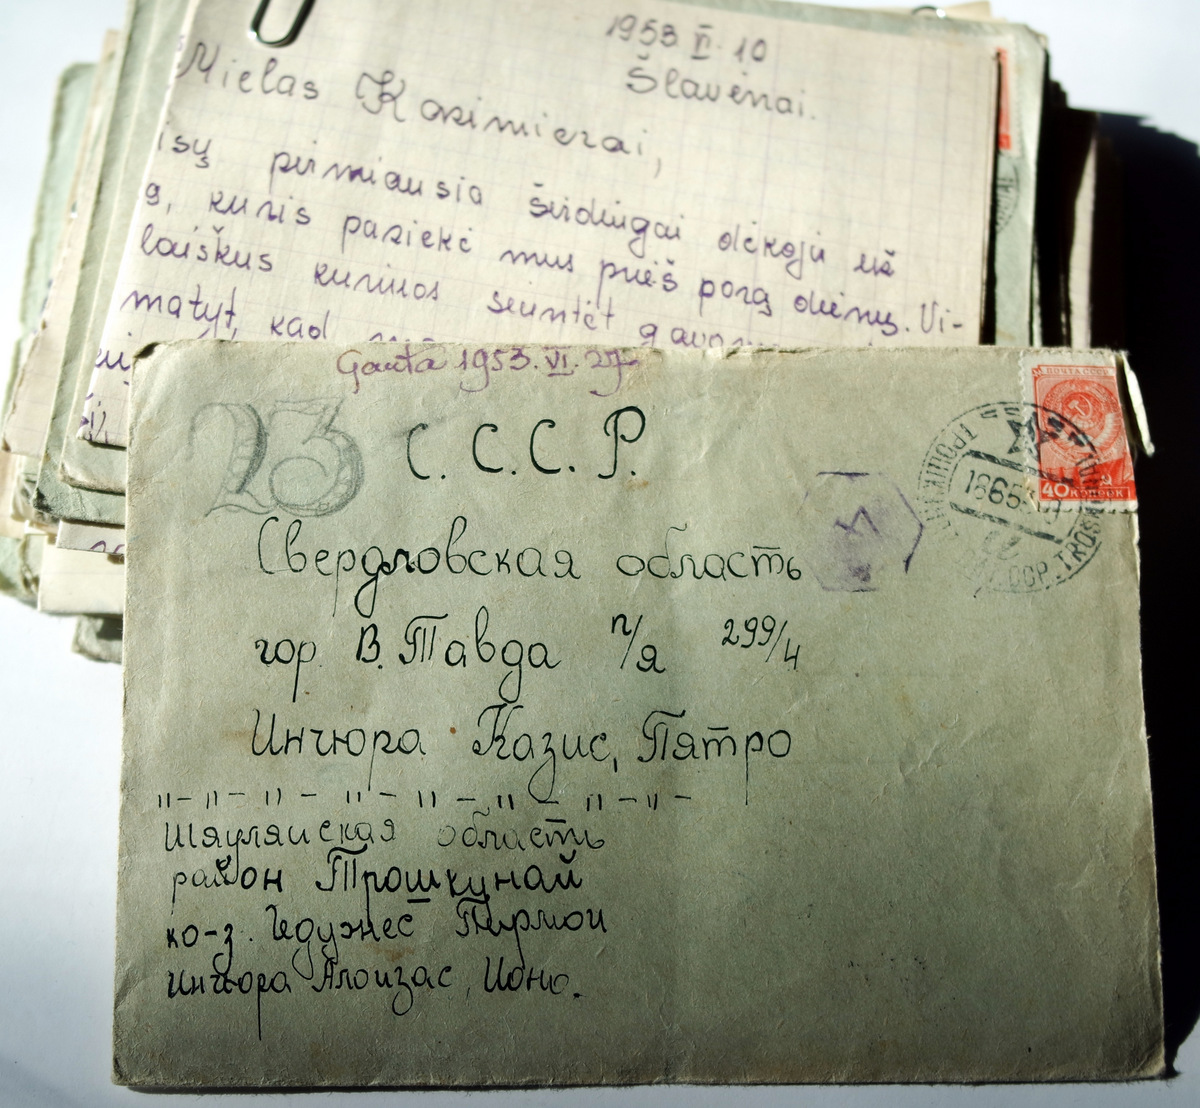 1953 VI. 10
Šlavėnai.
Mielas Kazimierai,
isų pirmiausia širdingai dėkoju už
ą, kuris pasiekė mus prieš porą dienų. Vi-
laiškus kuriuos siuntėt gavom
matyt, kad
Gauta 1953. VI. 27
23
С. С. С. Р.
ПОЧТА СССР
40 копеек
18653
TROŠK
Свердловская область
гор. В. Тавда п/я 299/4
Инчюра Казис, Пятро
"–"–"–"–"–"–"–"–
Шяуляйская область
район Трошкунай
ко-з. Гедужес Пирмои
Инчюра Алоизас, Ионо.